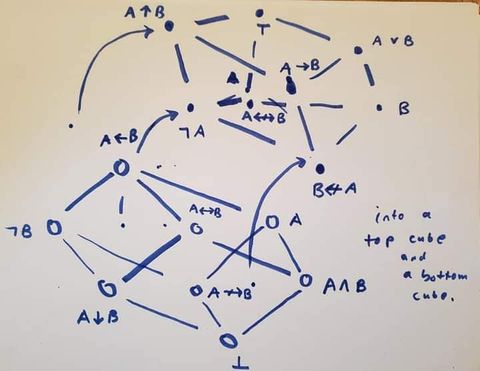 A ↑ B
T
A ∨ B
A → B
A
A ↔ B
B
¬A
A ← B
B ↚ A
A ↔ B
A
¬B
into a
top cube
and
a bottom
cube.
A ↛ B
A ∧ B
A ↓ B
⊥